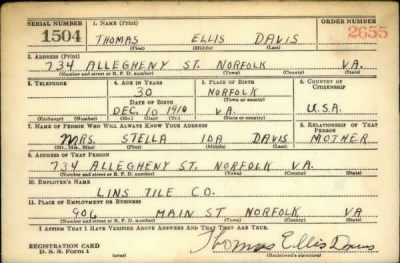 SERIAL NUMBER 1. NAME (Print) ORDER NUMBER
1504 THOMAS ELLIS DAVIS 2655
(First) (Middle) (Last)
2. ADDRESS (Print)
734 ALLEGHENY ST. NORFOLK VA.
(Number and street or R. F. D. number) (Town) (County) (State)
3. TELEPHONE 4. AGE IN YEARS 5. PLACE OF BIRTH 6. COUNTRY OF CITIZENSHIP
30 NORFOLK
DATE OF BIRTH (Town or county)
DEC. 10 1910 VA. U.S.A.
(Exchange) (Number) (Mo.) (Day) (Yr.) (State or country)
7. NAME OF PERSON WHO WILL ALWAYS KNOW YOUR ADDRESS 8. RELATIONSHIP OF THAT PERSON
MRS. STELLA IDA DAVIS MOTHER
(Mr., Mrs., Miss) (First) (Middle) (Last)
9. ADDRESS OF THAT PERSON
734 ALLEGHENY ST. NORFOLK VA.
(Number and street or R. F. D. number) (Town) (County) (State)
10. EMPLOYER'S NAME
LINS TILE CO.
11. PLACE OF EMPLOYMENT OR BUSINESS
906 MAIN ST. NORFOLK VA
(Number and street or R. F. D. number) (Town) (County) (State)
I AFFIRM THAT I HAVE VERIFIED ABOVE ANSWERS AND THAT THEY ARE TRUE.
REGISTRATION CARD Thomas Ellis Davis
D. S. S. Form 1 (Registrant's signature)